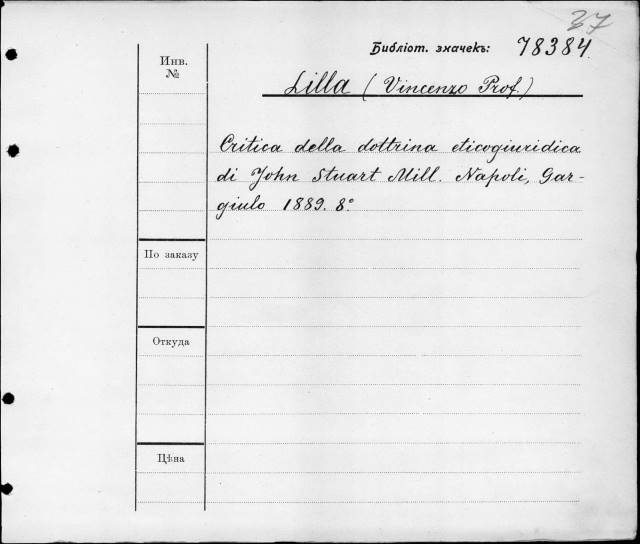 37
Библіот. значекъ: 78384
Инв.
№
Lilla (Vincenzo Prof.)
Critica della dottrina eticogiuridica
di John Stuart Mill. Napoli, Gar-
giulo 1889. 8°
По заказу
Откуда
Цѣна